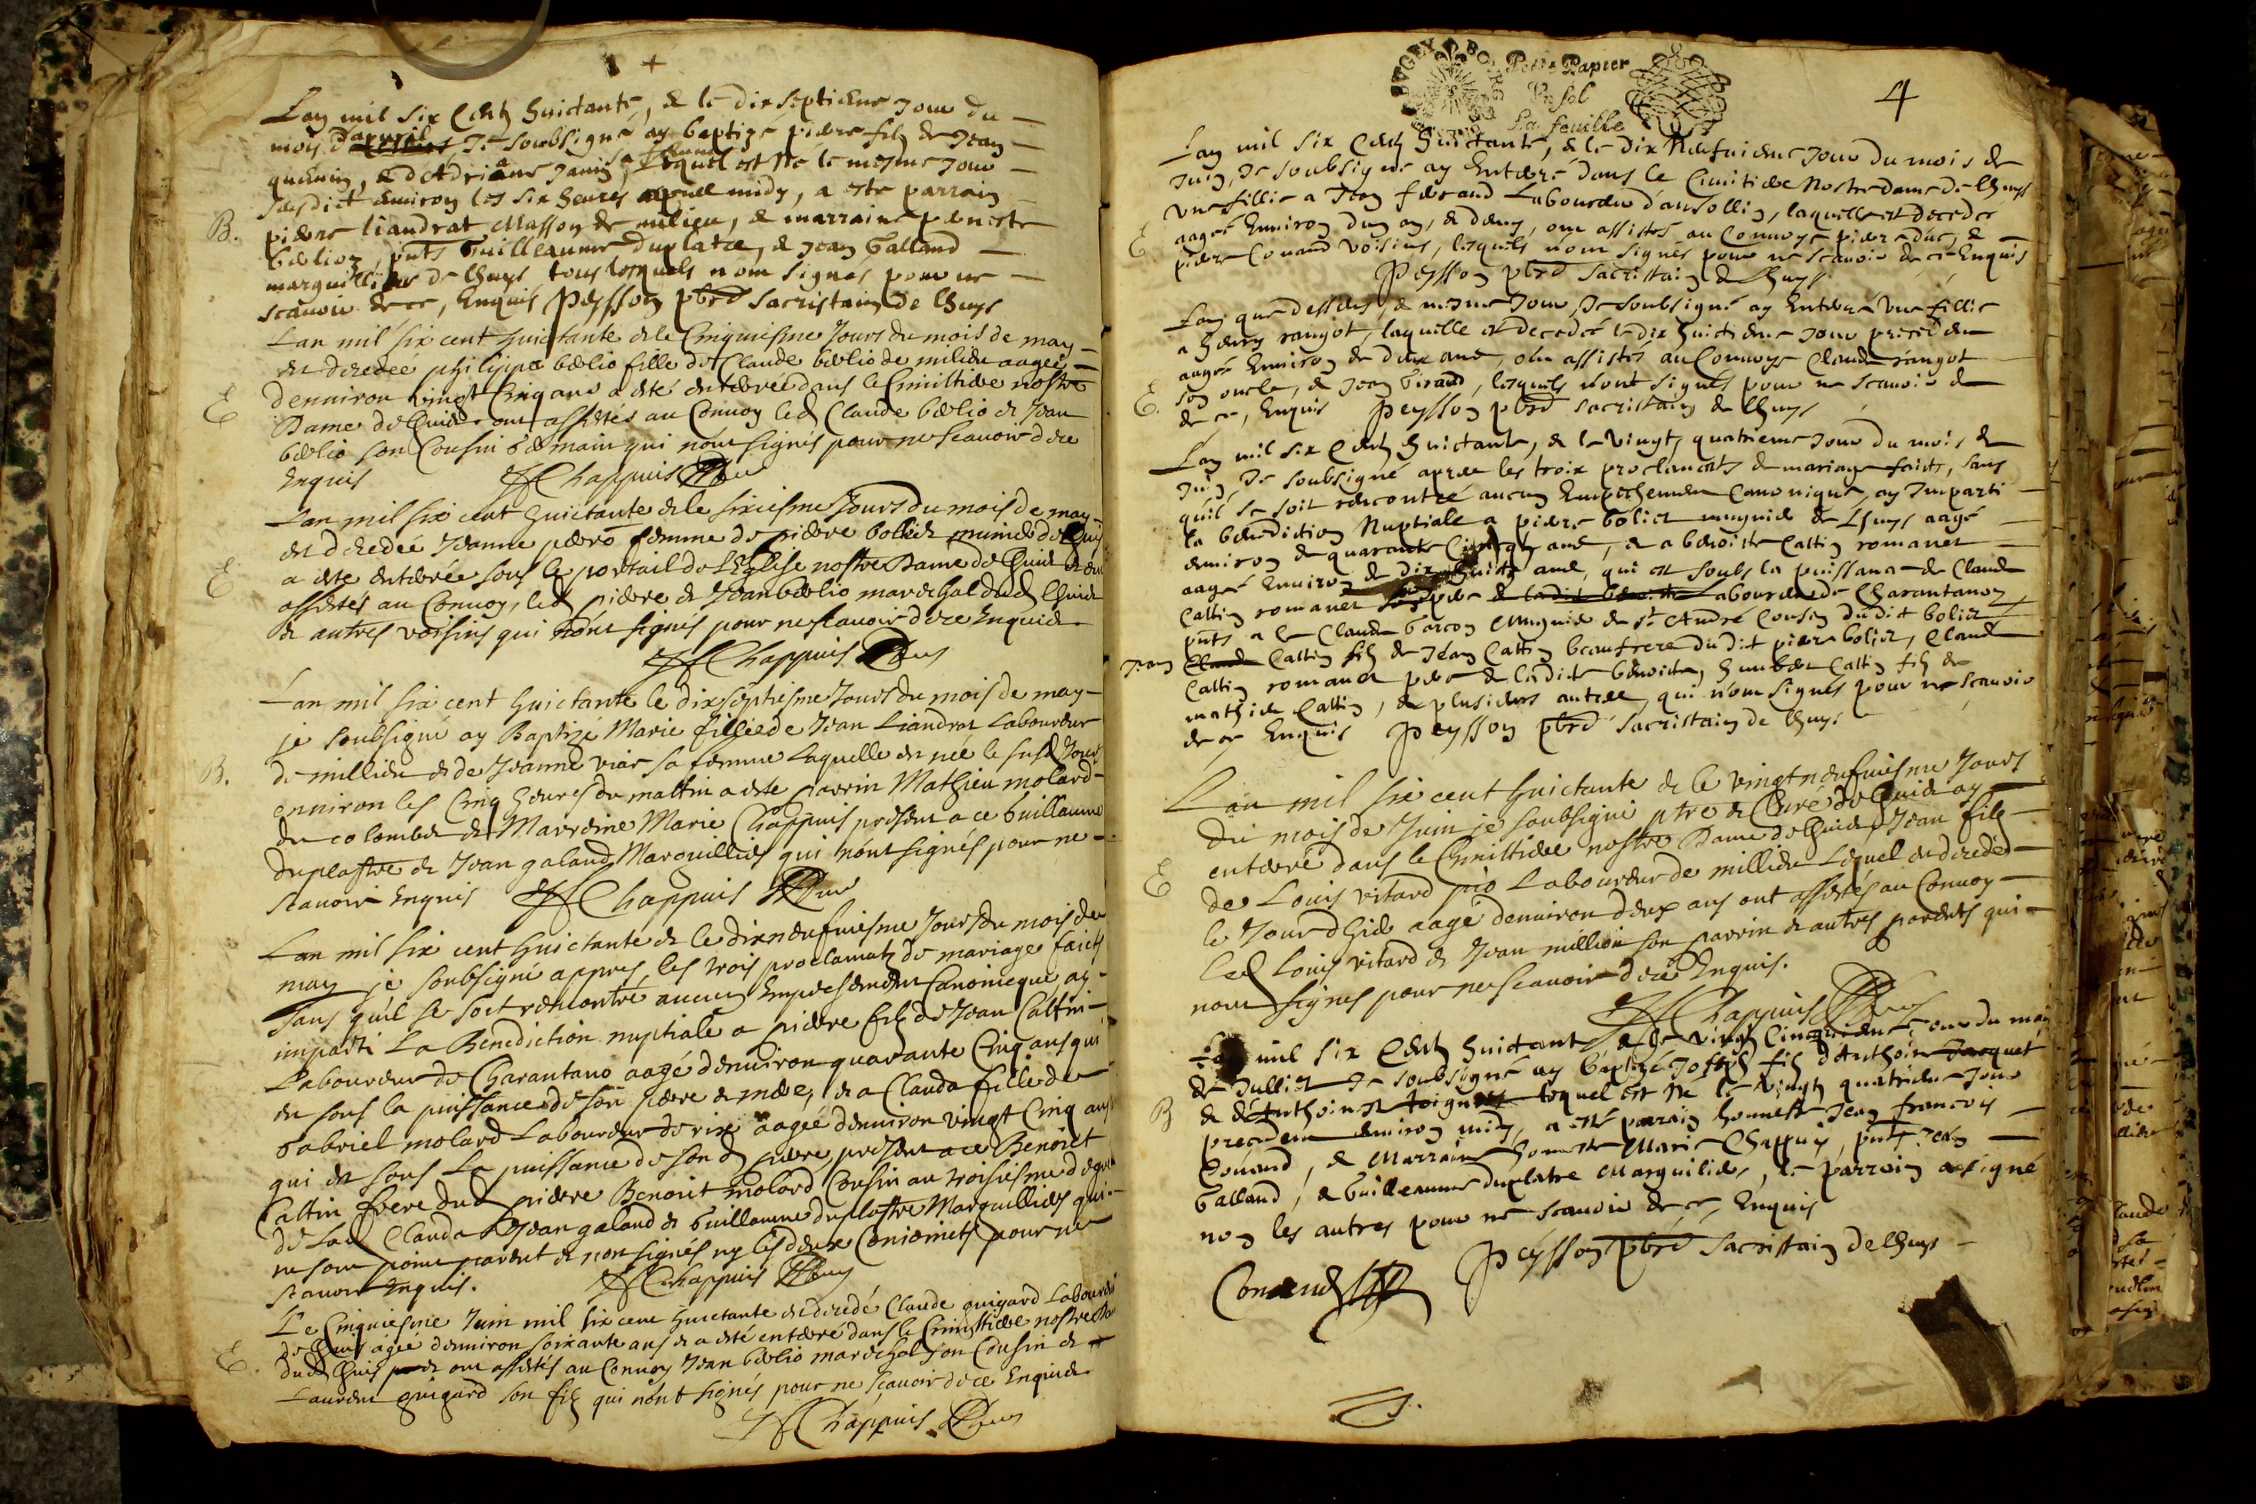 Lan mil six Centz huictante, & le dix septieme Jour du
mois d'apvril Je soubsigné ay baptizé pierre filz de Jean
quennin, & d'Adrianne Janin sa femme lequel est Né le mesme Jour
susdict environ les six heures apres midy, a este parrain
B. pierre liandrat Masson de milieu, & marraine pernette
berlioz, pnts Guilleaume duplatre, & Jean Galland
marguilliers de lhuys tous lesquels n'ont signés pour ne
scavoir de ce, Enquis Peysson pbre Sacristain de lhuys
Lan mil six cent huictante & le Cinquiesme Jours du mois de may
est decedée philippa berlio fille de Claude berlio de milieu aagée
E d'environ vingt Cinq ans a esté enterrée dans le Cimittiere nostre
Dame de Lhuis ont assistés au Convoy led Claude berlio et Jean
berlio son Cousin germain qui n'ont signés pour ne scavoir de ce
Enquis Chappuis Cure
Lan mil six cent huictante & le sixiesme Jours du mois de may
est decedée Jeanne pero femme de pierre bolliet munier de Lhuis
E a este enterrée sous le portail de L'Eglise nostre Dame de Lhuis et ont
assistés au Convoy, led pierre et Jean berlio marechal dud Lhuis
et autres voisins qui n'ont signés pour ne scavoir de ce Enquis
Chappuis Cure
Lan mil six cent huictante le dixseptiesme Jours du mois de may
je soubsigné ay Baptizé Marie fillie de Jean Liandrat Laboureur
B. de millieu et de Jeanne viar sa femme Laquelle est née le susd Jours
environ les Cinq heures du mattin a este parrin Mathieu molard
du colombier et Marreine Marie Chappuis present a ce Guillaume
duplastre et Jean galand Marguilliers qui n'ont signés pour ne
scavoir Enquis Chappuis Cure
Lan mil six cent huictante et le dixneufviesme Jours du mois de
may je soubsigné appres les trois proclamatz de mariage faicts
sans qu'il se soit rencontré aucun Empeschement Canonicque ay
imparti La Benediction nuptiale a pierre filz de Jean Cattin
Laboureur de Charantano aagé d'environ quarante Cinq ans qui
est sous la puissance de son pere et mere, et a Clauda fille de
Gabriel molard Laboureur de rix aagée d'environ vingt Cinq ans
qui est sous La puissance de son d pere, present a ce Benoict
Cattin frere dud pierre Benoit molard Cousin au troisiesme degré
de Lad Clauda & Jean galand et Guillaume duplastre Marguilliers qui
ne sont point parent et n'ont signés ny les deux Conioincts pour ne
scavoir Enquis. Chappuis Cure
Le Cinquiesme Juin mil six cent huictante est decedé Claude guigard Laboureur
E. de Lhuis agée d'environ soixante ans et a esté enterré dans le Cimittiere nostre Dame
dud Lhuis et ont assistés au Convoy Jean berlio marechal son Cousin et
Laurent guigard son filz qui n'ont signés pour ne scavoir de ce Enquis
Chappuis Cure
BUGEY BO
Petit Papier
Un sol
La feuille
4
Lan mil six Centz huictante, & le dix Neufvieme Jour du mois de
Juin, Je soubsigné ay Enterré dans le Cimitiere Nostre dame de lhuys
une fillie a Jean ferrand Laboureur d'ansollin, laquelle est decedee
E aagée Environ d'un an, & demy, ont assistes au Convoye pierre duc, &
pierre Conand voisins, lesquels n'ont signés pour ne scavoir de ce Enquis
Peysson pbre Sacristain de lhuys
Lan que dessus, & mesme Jour, Je soubsigné ay Enterré une fillie
a henry rangot, laquelle est decedée le dix huictieme Jour precedent
aagée Environ de deux ans, ont assistes au Convoye Claude rangot
E. son oncle, & Jean Giraud, lesquels n'ont signés pour ne scavoir de
de ce, Enquis Peysson pbre Sacristain de lhuys
Lan mil six Centz huictante, & le vingtz quatrieme Jour du mois de
Juin, Je soubsigné apres les troix proclamatz de mariage faits, sans
quil se soit rencontré aucun Empechement Canonique, ay Imparti
la benediction Nuptiale a pierre Boliet mugnier de Lhuys aagé
environ de quarante Cinq ans, & a benoiste Cattin romanet
aagée Environ de dix huict ans, qui est soubs la puissance de Claude
Cattin romanet son pere laboureur de Charantanoz
pnts a ce Claude Garcon Mugnier de st André Cousin dudit boliet
Jean Cattin filz de Jean Cattin beaufrere dudit pierre boliet, Claude
Cattin romanet pere de ladite benoiste, humbert Cattin filz de
mathieu Cattin, & plusieurs autres qui n'ont signés pour ne scavoir
de ce Enquis Peysson pbre Sacristain de lhuys
Lan mil six cent huictante & le vingtneufviesme Jours
du mois de Juin je soubsigné ptre et Curé de Lhuis ay
entérré dans le Cimittiere nostre Dame de Lhuis Jean filz
E de Louis vitard pio Laboureur de millieu Lequel est decedé
le Jourdhuis aagé d'environ deux ans ont assistés au Convoy
led Louis vitard et Jean million son parrin et autres parents qui
n'ont signés pour ne scavoir de ce Enquis.
Chappuis Cure
Lan mil six Centz huictante & le vingtz Cinquieme Jour du mois
de Julliet Je soubsigné ay baptizé Joseph filz d'Anthoine Jacquet
B & d'Anthoinette lequel est Né le vingtz quatrieme Jour
precedent environ midy, a esté parrain honneste Jean francois
Conand, & Marraine honneste Marie Chappuis, pnts Jean
Galland, & Guilleaume duplatre Marguiliers, le parrain a signé
non les autres pour ne scavoir de ce, Enquis
Peysson pbre Sacristain de lhuys
Conand